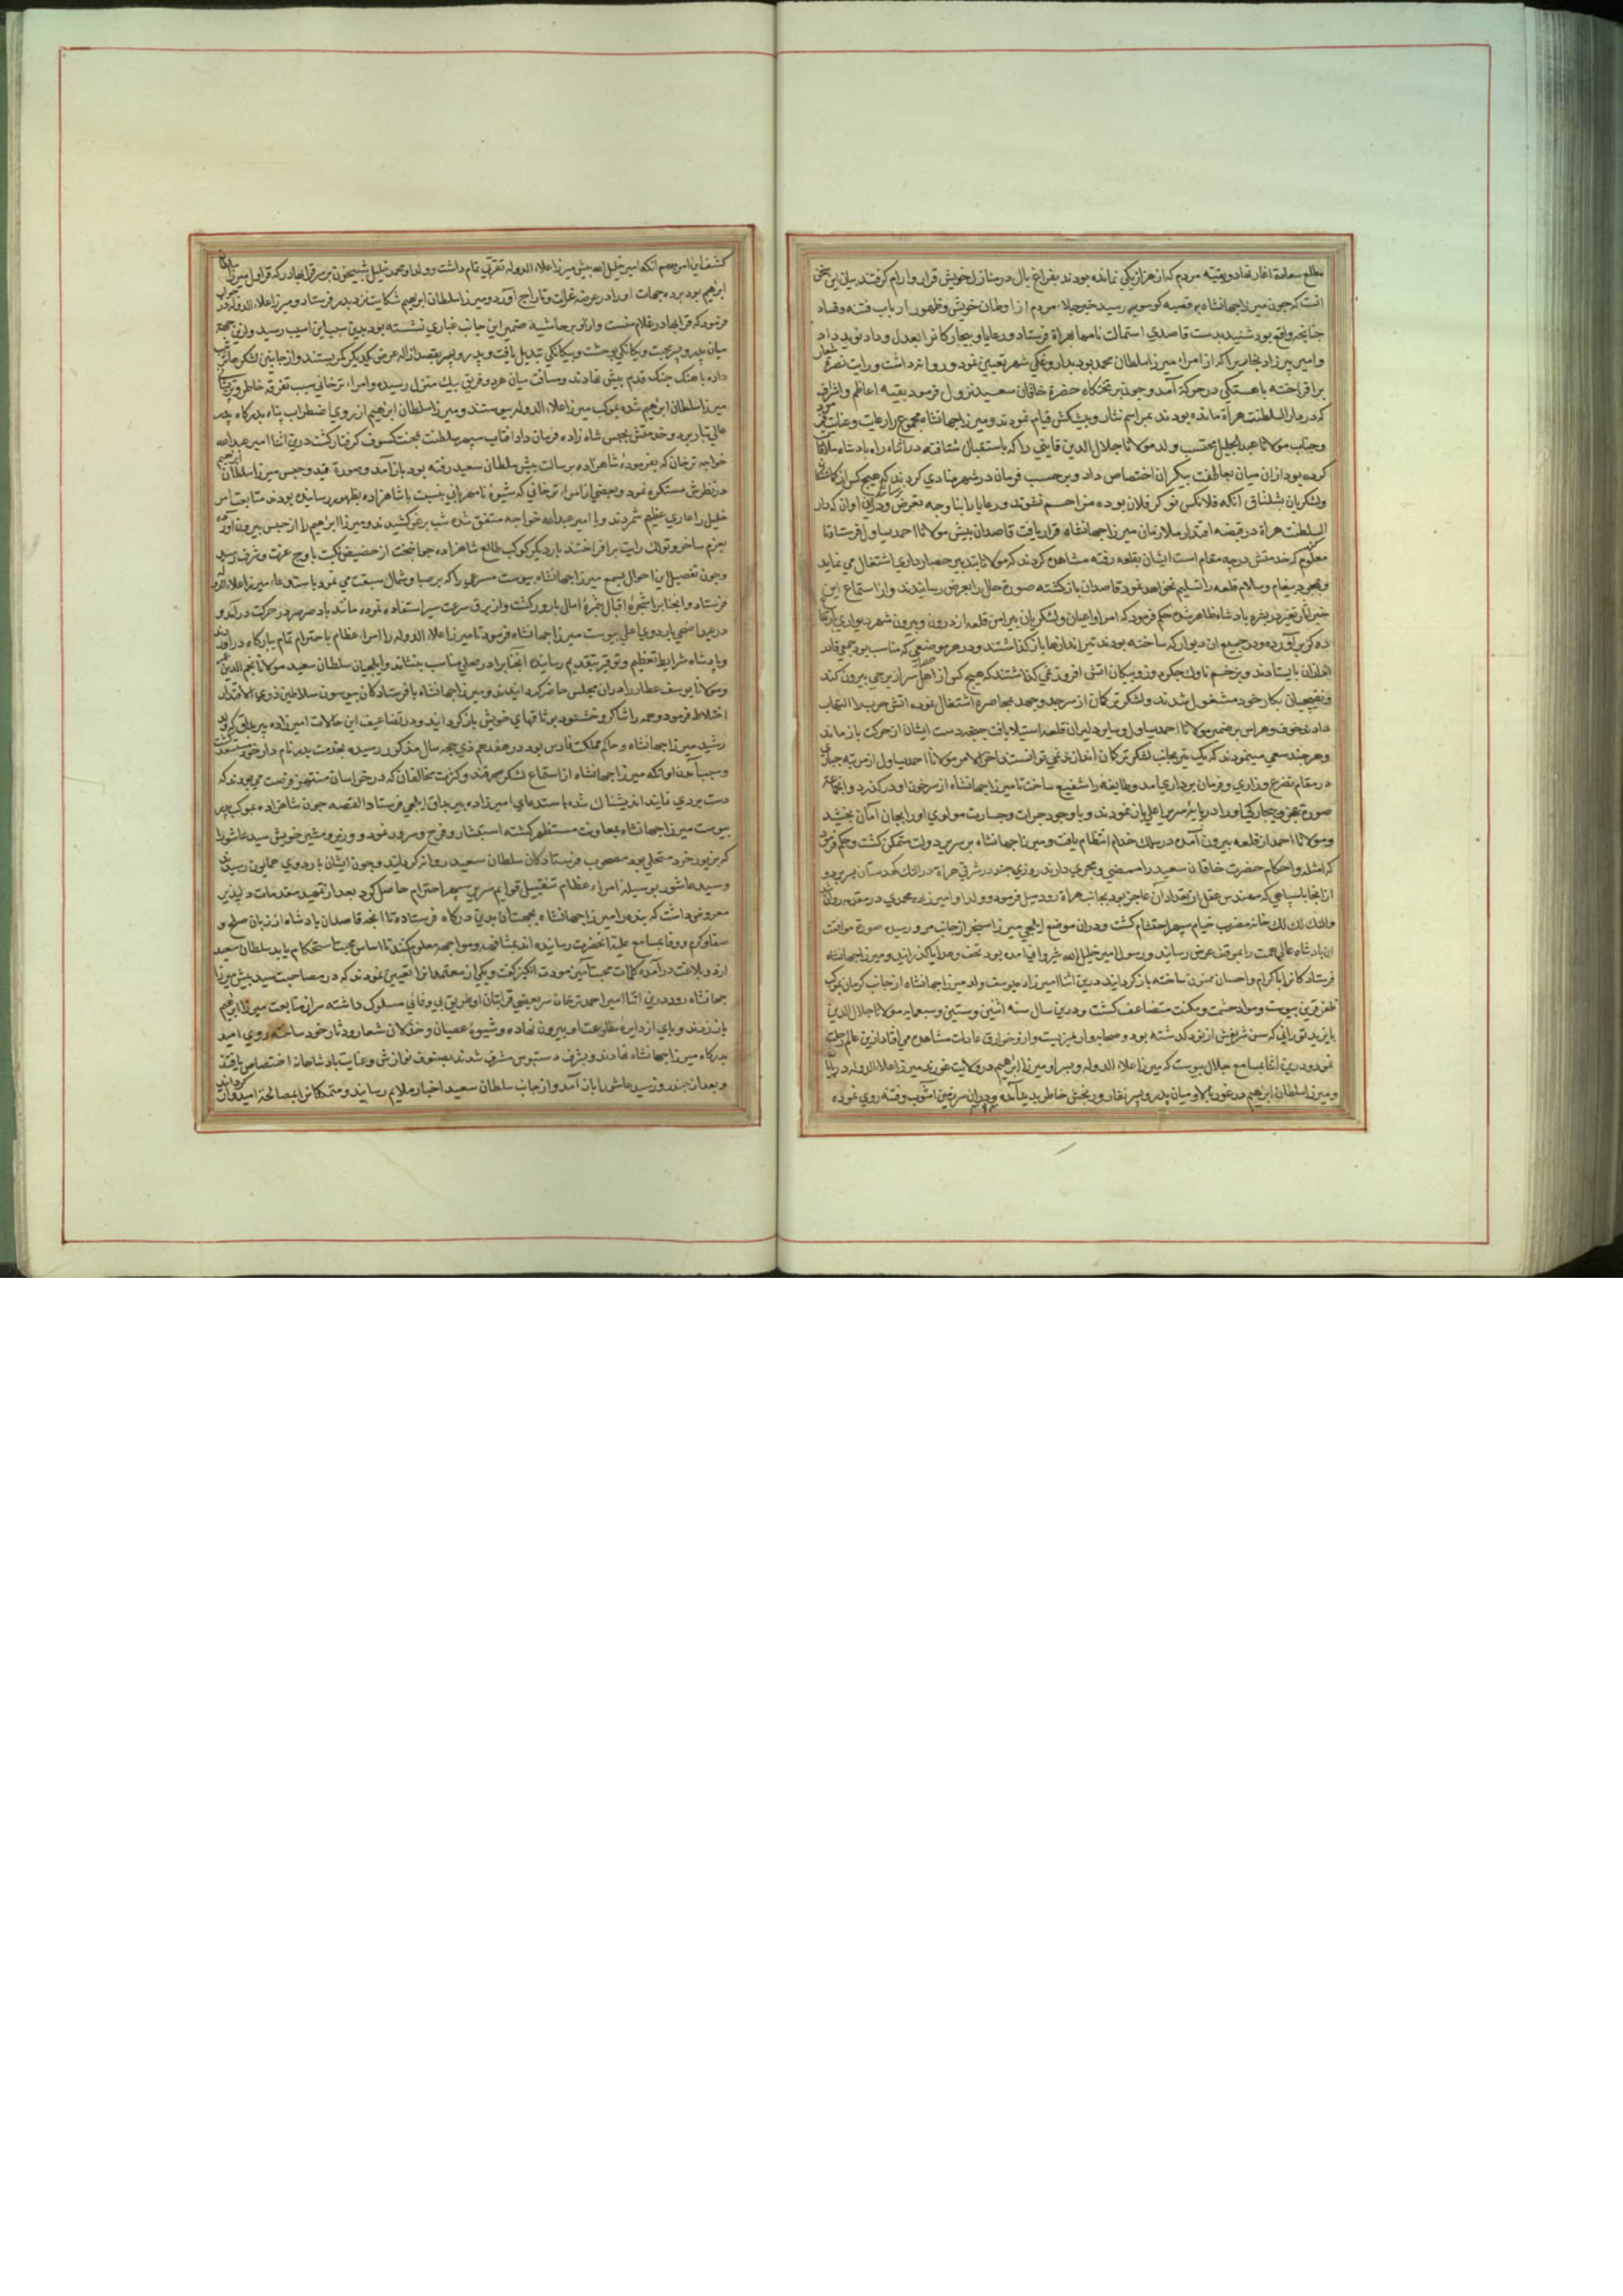 مطلع سعادة اغاز نهاد و بقیه مردم که از هزار یکی نمانده بودند بفراغ بال در منازل خویش قرار و ارام گرفتند بیان این سخن
انست که چون میرزا جهانشاه بر قصبه کوسویه رسید خبر جلاء مردم از اوطان خویش و ظهور ارباب فتنه و فساد
چنانچه واقع بود شنید بدست قاصدی استمالت نامها بهراة فرستاد و رعایا و بیچارکانرا بعدل و داد نوید داد
و امیر پیرزاد بخاری را که از امراء میرزا سلطان محمد بود بداروغکی شهر تعیین نمود و روانه داشت و رایت نصرة شعار
برافراخته باهستکی در حرکة آمد و چون بر تختکاه حضرة خاقان سعید نزول فرمود بقیه اعاظم و اشراف
که در دار السلطنت هراة مانده بودند بمراسم نثار و پیشکش قیام نمودند و میرزا جهانشاه مجموع را رعایت و عنایت فرمود
و جناب مولانا عبدالجلیل محتسب ولد مولانا جلال الدین قاینی را که باستقبال شتافته در اثناء راه پادشاه ملاقات
کرده بود ازان میان بعاطفت بیکران اختصاص داد و بر حسب فرمان در شهر منادی کردند که هیچ کس از
و لشکریان بشلتاق آنکه فلانکس نوکر فلان بوده مزاحم نشوند و رعایا را بنا وجه تعرض نرسانند و دران اوان که دار
السلطنت هراة در قبضه اقتدار ملازمان میرزا جهانشاه قرار یافت قاصدان پیش مولانا احمد یساول فرستاد تا
معلوم کند که خدمتش در چه مقام است ایشان بقلعه رفته مشاهده کردند که مولانا بتدبیر حصارداری اشتغال می نماید
و بمجرد پیغام و سلام قلعه را تسلیم نخواهد نمود قاصدان بازکشته صورة حال را بعرض رسانیدند و از استماع این
خبر آثار تغیر در بشره پادشاه ظاهر شده حکم فرمود که امرا و اعیان و لشکریان پیرامن قلعه از درون و بیرون شهر دیواری بارتفاع
ده کز برآورده و در جمیع ان دیوار که ساخته بودند تیر اندازها باز کذاشتند و در هر موضعی که مناسب بود جمعی قادر
اندازان بایستادند و بزخم ناوک جکردوز و پیکان اتشی افروز نمی کذاشتند که هیچ کس از اهل حصار سر از برجی بیرون کند
و نقبچیان بکار خود مشغول شدند و لشکر ترکمان از سر جد و جهد بمحاصره اشتغال نموده اتش حرب را التهاب
دادند خوف و هراس بر ضمیر مولانا احمد یساول و سایر دلیران قلعه استیلا یافت جنانچه دست ایشان از حرکت باز ماند
و هر چند سعی مینمودند که یک تیر بجانب لشکر ترکمان اندازند نمی توانستند اخر الامر مولانا احمد یساول از مرتبه جباری
در مقام تضرع و زاری و فرمان برداری آمد و طایفه را شفیع ساخت تا میرزا جهانشاه از سر خون او در کذرد و انجماعة
صورة عجز و بیچارکی او را در پایه سریر اعلی باز نمودند و با وجود جرات و جسارت مولوی او را بجان امان بخشید
و مولانا احمد از قلعه بیرون آمده در سلک خدام انتظام یافت و میرزا جهانشاه بر سریر دولت متمکن کشت و حکم فرمود
که امثله و احکام حضرت خاقان سعید را ممضی و مجری دارند روزی چند در شرقی هراة در النک کهدستان بسر برد و
از انجا با سپاهی که مهندس عقل از تعداد آن عاجز بود بجانب هراة رود میل فرمود و ولد او امیرزاده محمدی در مقدمه روان شد
و النک لک لک خانه مضرب خیام سپهر احتشام کشت و دران موضع ایلچی میرزا سنجر از جانب مرو رسید صورة موافقت
ان پادشاه عالی همت را بموقف عرض رسانید و رسول امیر خلیل الله شروانی آمده بود تحف و هدایا کذرانید و میرزا جهانشاه
فرستادکانرا باکرام و احسان ممنون ساخته باز کردانید درین اثنا امیرزاده یوسف ولد میرزا جهانشاه از جانب کرمان بموکب
ظفر قرین پیوست و مواد حشمت و مکنت متضاعف کشت و درین سال سنه اثنین و ستین و سبعمایه مولانا جلال الدین
بایزید تورانی که سن شریفش از نود کذشته بود و صحابه وار میزیست و از و خوارق عادات مشاهده می افتاد ازین عالم رحلت
نمود و درین اثنا بمسامع جلال پیوست که میرزا علاء الدوله و پسر او میرزا ابرهیم در ولایت غورند میرزا علاء الدوله در
و میرزا سلطان ابرهیم در غور بالا و میان پدر و پسر نقار و رنجش خاطر پدید آمده و دران سرزمین آشوب و فتنه روی نموده
کشف این امر مبهم آنکه امیر خلیل الله پیش میرزا علاء الدوله تقرتی تمام داشت و ولد او محمد خلیل شبیخون بر سر قرا بهادر که قراول میرزا سلطان
ابرهیم بود برده جهات او را در عرضه غارت و تاراج آورد و میرزا سلطان ابرهیم شکایت نزد پدر فرستاد و میرزا علاء الدوله در جواب
فرمود که قرا بهادر غلام منست و ازو بر حاشیه ضمیر این جانب غباری نشسته بود بدین سبب این اسیب رسید و ازین جهة
میان پدر و پسر محبت و یکانکی بوحشت و بیکانکی تبدیل یافت و پدر و پسر بقصد ازاله عرض یکدیکر کمر بستند و از جانبین لشکرها ترتیب
داده باهنک جنک قدم پیش نهادند و مسافت میان هر دو فریق بیک منزل رسید و امراء ترخانی سبب تفرقه خاطر و
میرزا سلطان ابرهیم شده بموکب میرزا علاء الدوله پیوستند و میرزا سلطان ابرهیم از روی اضطراب پناه بدرکاه پدر
عالی تبار برد و خدمتش بحبس شاه زاده فرمان داد افتاب سپهر سلطنت بمحنت کسوف کرفتار کشت درین اثنا امیر عبدالله
خواجه ترخان که بفرموده شاهزاده برسالت پیش سلطان سعید رفته بود باز آمد و صورة قید و حبس میرزا سلطان ابرهیم
در نظرش مستکره نمود و بعضی از امراء ترخانی که شیوه نامهربانی بنسبت با شاهزاده بظهور رسانیده بودند متابعت امیر
خلیل را عاری عظیم شمردند و با امیر عبدالله خواجه متفق شده شب برغو کشیدند و میرزا ابرهیم را از حبس بیرون آورده
بعزم ساخر و تولک رایت برافراختند بار دیکر کوکب طالع شاهزاده جوانبخت از حضیض نکبت باوج عزت و شرف رسید
و چون تفصیل این احوال بسمع میرزا جهانشاه پیوست مسرعی را که بر صبا و شمال سبقت می نمود باستدعاء میرزا علاء الدوله
فرستاد و انجناب را شجرة اقبال بثمرة امال بارور کشت و از برق سرعت سیر استفاده نموده مانند باد صرصر در حرکت درآمد و
در عید اضحی باردوی اعلی پیوست میرزا جهانشاه فرمود تا میرزا علاء الدوله را امراء عظام باحترام تمام ببارکاه دراوردند
و پادشاه شرایط تعظیم و توقیر بتقدیم رسانیده انجناب را در محلی مناسب بنشاند و ایلچیان سلطان سعید مولانا نجم الدین
و مولانا یوسف عطار را دران مجلس حاضر کردانیدند و میرزا جهانشاه با فرستادکان بسون سلاطین ذوی الاقتدار
اختلاط فرمود و همه را شاکر و خشنود بوثاقهای خویش باز کردانید و در تضاعیف این حالات امیرزاده پیر بداق که ولد
رشید میرزا جهانشاه و حاکم مملکت فارس بود در هفدهم ذی حجه سال مذکور رسیده بخدمت پدر نامدار خود مستسعد کشت
و سبب آمدن او انکه میرزا جهانشاه از استماع لشکر سمرقند و کثرت مخالفان که در خراسان منتهز فرصت می بودند که
دست بردی نمایند اندیشناک شده باستدعای امیرزاده پیر بداق ایلچی فرستاد القصه چون شاهزاده بموکب پدر
پیوست میرزا جهانشاه بمعاونت مستظهر کشته استبشار و فرح و سرور نمود و وزیر و مشیر خویش سید عاشور را
که بزیور خرد متحلی بود مصحوب فرستادکان سلطان سعید روانه کردانید و چون ایشان باردوی همایون رسیدند
و سید عاشور بوسیله امراء عظام تقبیل قوایم سریر سپهر احترام حاصل کرد بعد از تمهید مقدمات دلپذیر
معروض داشت که بنده را میرزا جهانشاه بجهت آن بدین درکاه فرستاده تا انچه قاصدان پادشاه از زبان صلح و
صفا و کرم و وفا بمسامع علیه انحضرت رسانیده اند بمشافهه و مواجهه معلوم کند تا اساس محبت استحکام یابد سلطان سعید
از در بلاغت درآمده کلمات محبت آمیز مودت انکیز کفت و یکی از معتمدانرا تعیین نمودند که در مصاحبت سید پیش میرزا
جهانشاه رود درین اثنا امیر احمد ترخان سر بعضی قرابتان او طریق بی وفایی مسلوک داشته سر از متابعت میرزا ابرهیم
باز زدند و پای از دایره مطاوعت او بیرون نهاده و شیوه عصیان و خذلان شعار و دثار خود ساخته روی امید
بدرکاه میرزا جهانشاه نهادند و بشرف دستبوس مشرف شدند بصنوف نوازش و عنایت پادشاهانه اختصاص یافتند
و بعد از چند روز سید عاشور باز آمد و از جانب سلطان سعید اخبار ملایم رسانید و متمکانرا بمصالحة امیدوار کردانید